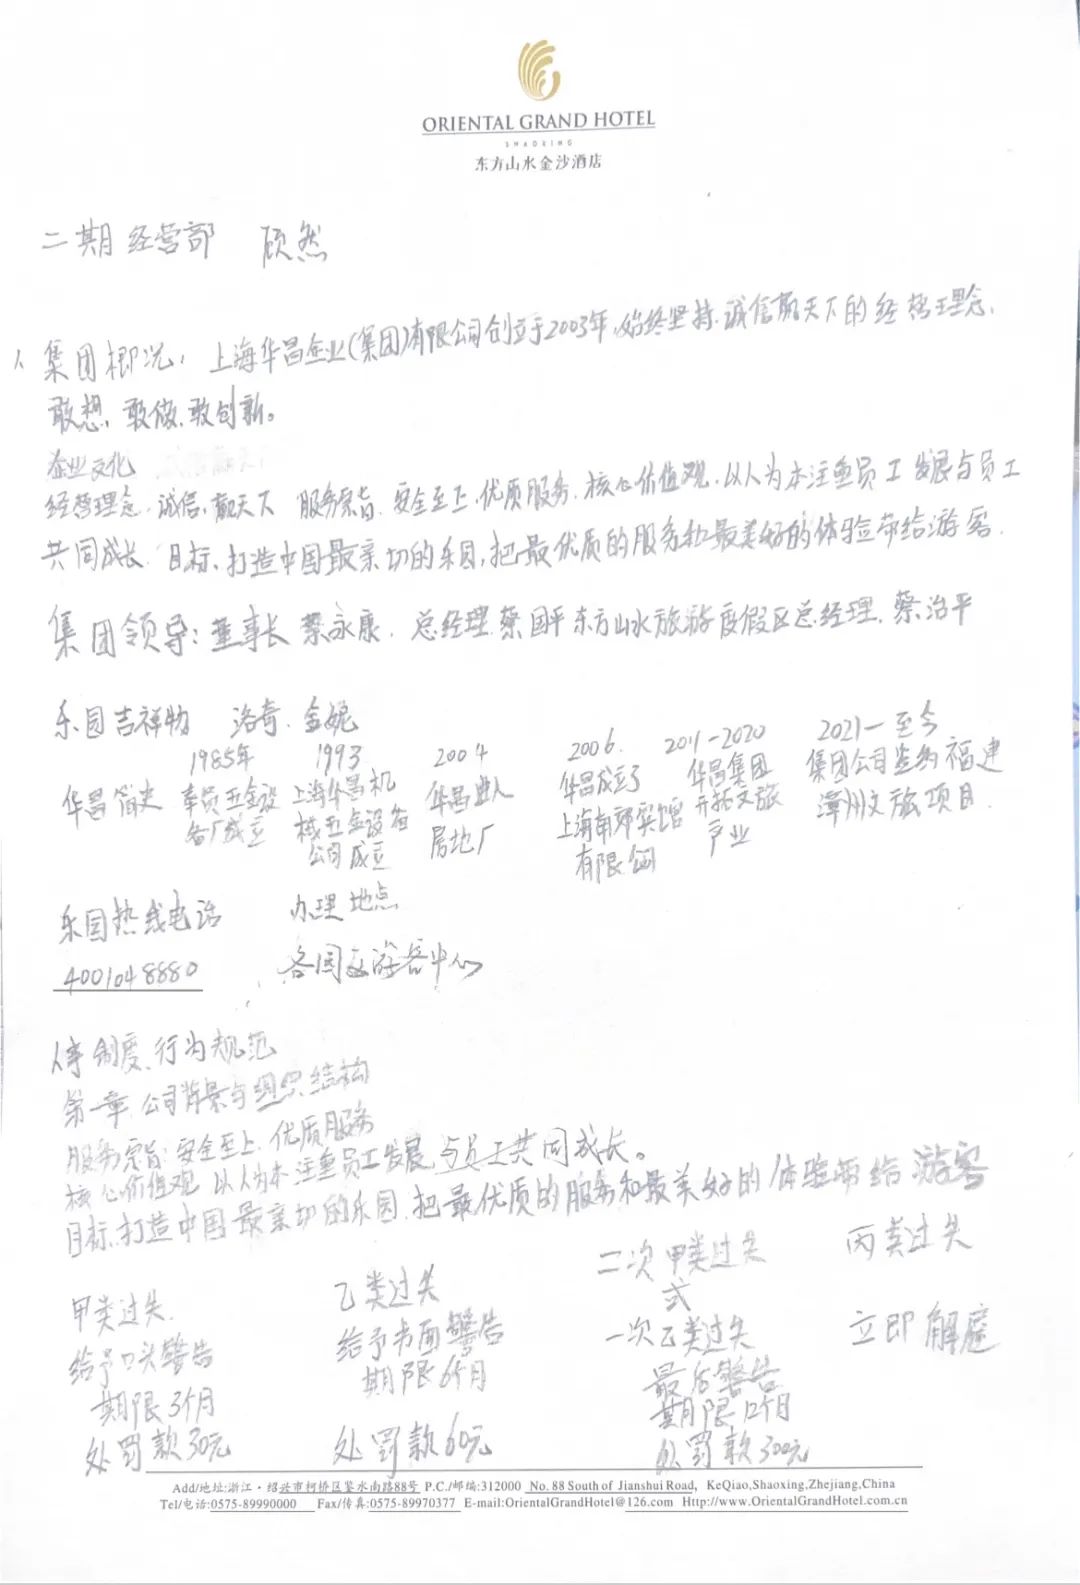 ORIENTAL GRAND HOTEL
SHAOXING
东方山水金沙酒店
二期 经营部 顾然
1、集团概况：上海华昌企业(集团)有限公司创立于2003年,始终坚持.诚信赢天下的经营理念.
敢想,敢做,敢创新。
企业文化
经营理念.诚信.赢天下 服务宗旨.安全至上.优质服务.核心价值观.以人为本注重员工发展与员工
共同成长.目标.打造中国最亲切的乐园,把最优质的服务和最美好的体验带给游客.
集团领导:董事长 蔡永康.总经理 蔡国平 东方山水旅游度假区总经理.蔡治平
乐园吉祥物 洛奇.金妮
华昌简史
1985年
五金设
备厂成立
1993
上海华昌机
械五金设备
公司成立
2004
华昌进入
房地厂
2006.
华昌成立了
上海南郊宾馆
有限公司
2011-2020
华昌集团
开拓文旅
产业
2021-至今
集团公司签约福建
漳州文旅项目.
乐园热线电话
4001048880
办理地点
各园区游客中心
人事制度、行为规范
第一章.公司背景与组织结构
服务宗旨:安全至上.优质服务
核心价值观 以人为本 注重员工发展.与员工共同成长。
目标.打造中国最亲切的乐园.把最优质的服务和最美好的体验带给游客
甲类过失.
给予口头警告
期限3个月
处罚款30元
乙类过失
给予书面警告
期限6个月
处罚款60元
二次甲类过失
或
一次乙类过失
最后警告
期限12个月
处罚款300元
丙类过失
立即解雇
Add/地址:浙江·绍兴市柯桥区鉴水南路88号 P.C./邮编:312000 No. 88 South of Jianshui Road, KeQiao,Shaoxing,Zhejiang,China
Tel/电话:0575-89990000 Fax/传真:0575-89970377 E-mail:OrientalGrandHotel@126.com Http://www.OrientalGrandHotel.com.cn